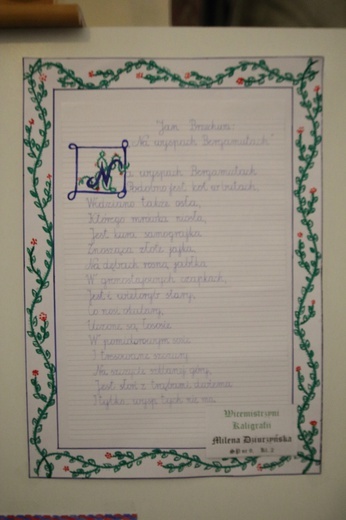 Jan Brzechwa:
"Na wyspach Bergamutach"
Na wyspach Bergamutach
Podobno jest kot w butach.
Widziano także osła,
Którego mrówka niosła,
Jest kura samograjka
Znosząca złote jajka,
Na dębach rosną jabłka
W gronostajowych czapkach,
Jest i wieloryb stary,
Co nosi okulary,
Uczone są łososie
W pomidorowym sosie
I tresowane szczury
Na szczycie szklanej góry,
Jest słoń z trąbami dwiema
I tylko... wysp tych nie ma.
Wicemistrzyni
Kaligrafii
Milena Dziurzyńska